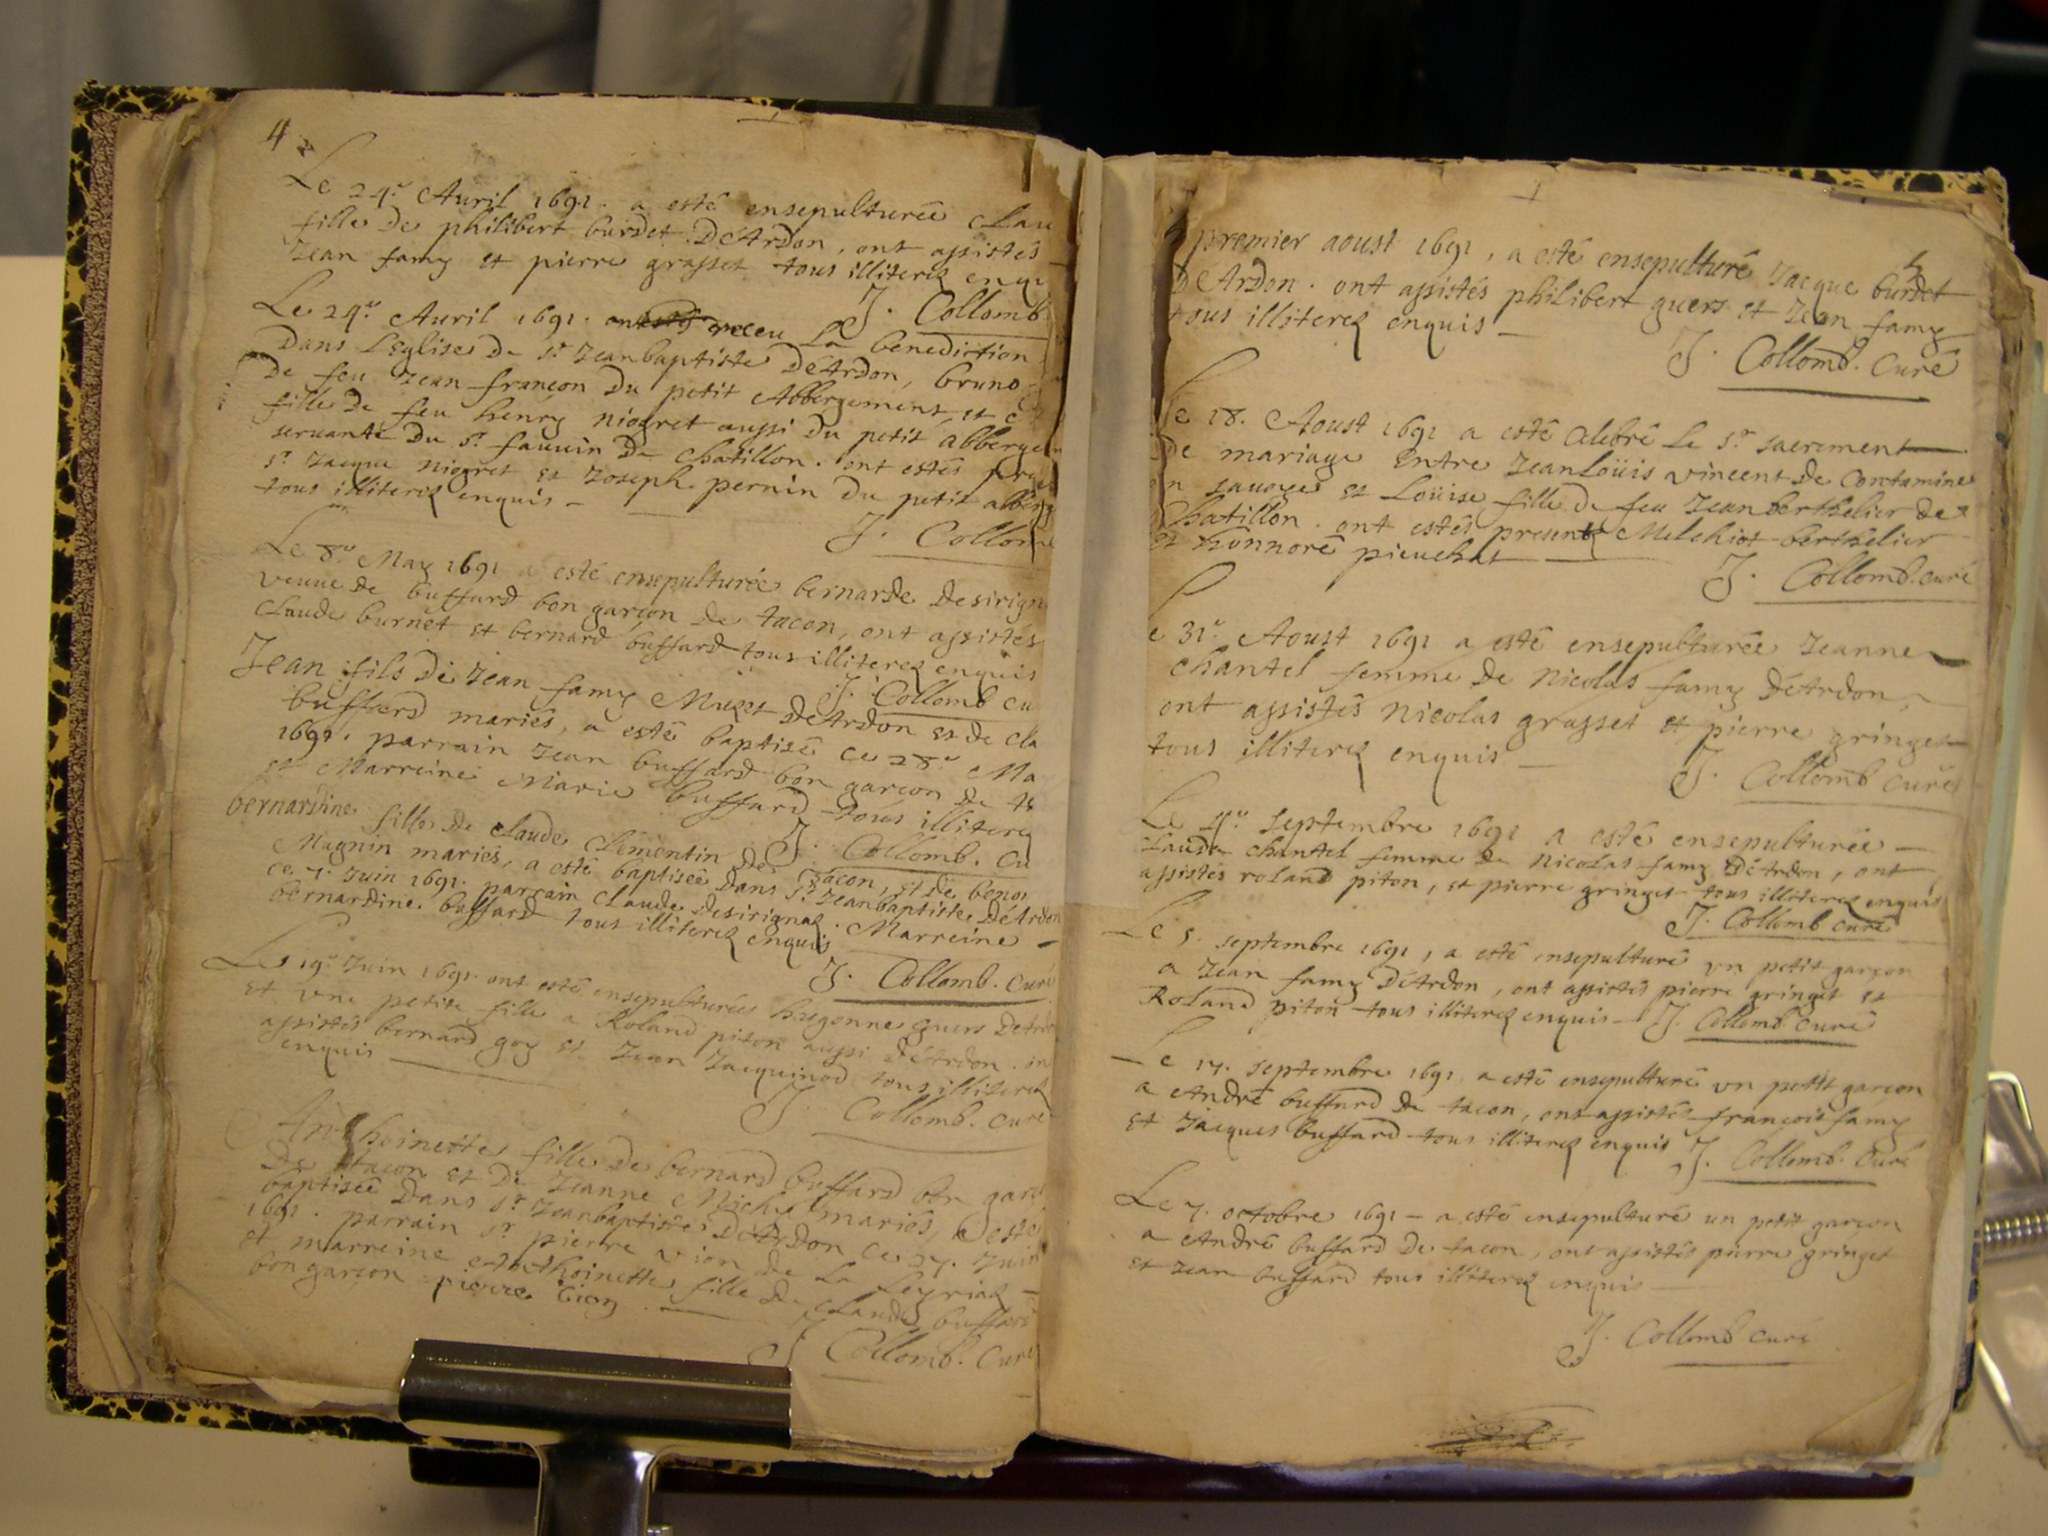 4
Le 24.e Auril 1691. a esté ensepulturée Clau
fille de philibert burdet d'Ardon, ont assistés
Jean famy et pierre grasset tous illiterez enqu
J. Collomb
Le 29.e Auril 1691. receu La benediction
Dans L'Eglise de St Jeanbaptiste D'Ardon, bruno
de feu Jean françon du petit Abbergement, et
fille de feu henry niogret aussi du petit abberge
seruante du Sr fauuin de Chatillon. ont estés
Sr Jacque niogret et Joseph pernin du petit abberg
tous illiterez enquis
J. Collom
Le 8.e May 1691 a esté ensepulturée bernarde desirign
veuue de buffard bon garçon de tacon, ont assistés
Claude burnet et bernard buffard tous illiterez enquis
J. Collomb cu
Jean fils de Jean famy Muzet d'Ardon et de Cla
buffard mariés, a esté baptisé ce 28.e Ma
1691. parrain Jean buffard bon garçon de ta
et Marreine Marie buffard tous illiterez
J. Collomb. Cu
bernardine fille de claude Clementin de tacon, et de benoi
Magnin mariés, a esté baptisée dans St Jeanbaptiste d'Ardon
ce 7.e Juin 1691. parrain Claude desirignaz. Marreine
bernardine buffard tous illiterez enquis
J. Collomb. Curé
Le 19.e Juin 1691. ont esté ensepulturées hugonne guers
et une petite fille a Roland piton aussi d'Ardon.
assistés bernard goy et Jean Jacquinod tous illiterez
enquis
J. Collomb. Curé
Anthoinette fille de bernard buffard bon garç
de tacon et de Jeanne Michu mariés, a esté
baptisée Dans St Jeanbaptiste D'Ardon ce 27. Juin
1691. parrain Sr pierre vion de La Leyriaz
et marreine Anthoinette fille de Claude buffard
bon garçon pierre Vion
J. Collomb. Curé
5
premier aoust 1691, a esté ensepulturé Jacque burdet
d'Ardon. ont assistés philibert guers et Jean famy
tous illiterez enquis
J. Collomb. Curé
Le 18. Aoust 1691 a esté Celebré Le St sacrement
de mariage Entre JeanLoüis vincent de Contamine
en sauoye et Loüise fille de feu Jean berthelier de
Chatillon. ont estés presentz Melchiot berthelier
et honnoré
J. Collomb. curé
Le 31.e Aoust 1691 a esté ensepulturée Jeanne
Chantel femme de Nicolas famy d'Ardon,
ont assistés Nicolas grasset et pierre gringet
tous illiterez enquis
J. Collomb curé
Le septembre 1691 a esté ensepulturée
Claude Chantel femme de Nicolas famy d'Ardon, ont
assistés roland piton, et pierre gringet tous illiterez enquis
J. Collomb curé
Le 5. septembre 1691, a esté ensepulturé vn petit garçon
a Jean famy d'Ardon, ont assistés pierre gringet et
Roland piton tous illiterez enquis J. Collomb curé
Le 17. septembre 1691 a esté ensepulturé vn petit garçon
a André buffard de tacon, ont assistés françois famy
et Jacques buffard tous illiterez enquis J. Collomb. Curé
Le 7. octobre 1691 a esté ensepulturé un petit garçon
a André buffard de tacon, ont assistés pierre gringet
et Jean buffard tous illiterez enquis
J. Collomb curé